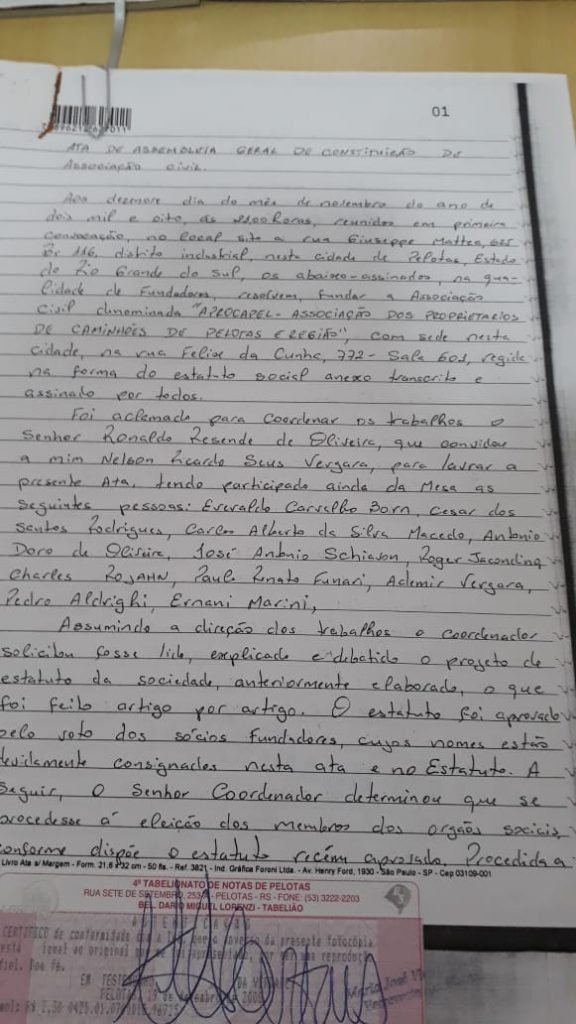 01
ATA DE ASSEMBLEIA GERAL DE CONSTITUIÇÃO DE
Associação Civil.
Aos dezenove dia do mês de novembro do ano de
dois mil e oito, as horas, reunidos em primeira
convocação, no local sito a rua Giuseppe Mattea, 625
Br 116, distito industrial, nesta cidade de Pelotas, Estado
do Rio Grande do Sul, os abaixo-assinados, na qua-
lidade de Fundadores, resolvem, fundar a Associação
Civil denominada "APROCAPEL - ASSOCIAÇÃO DOS PROPRIETARIOS
DE CAMINHÕES DE PELOTAS E REGIÃO", com sede nesta
cidade, na rua Felix da Cunha, 772 - Sala 601, regida
na forma do estatuto social anexo transcrito e
assinado por todos.
Foi aclamado para coordenar os trabalhos o
Senhor Ronaldo Resende de Oliveira, que convidou
a mim Nelson Ricardo Seus Vergara, para lavrar a
presente Ata, tendo participado ainda da Mesa as
seguintes pessoas: Everaldo Carvalho Born, Cesar dos
Santos Rodrigues, Carlos Alberto da Silva Macedo, Antonio
Doro de Oliveira, José Antônio Schiavon, Roger Jacondino
Charles ROJAHN, Paulo Renato Funari, Ademir Vergara,
Pedro Aldrighi, Ernani Marini,
Assumindo a direção dos trabalhos o coordenador
solicitou fosse lido, explicado e debatido o projeto de
estatuto da sociedade, anteriormente elaborado, o que
foi feito artigo por artigo. O estatuto foi aprovado
pelo voto dos sócios Fundadores, cujos nomes estão
devidamente consignados nesta ata e no Estatuto. A
Seguir, o Senhor Coordenador determinou que se
procedesse á eleição dos membros dos orgãos sociais,
conforme dispõe o estatuto recém aprovado. Procedida a
Livro Ata s/ Margem - Form. 21,6 x 32 cm - 50 fls. - Ref. 3821 - Ind. Gráfica Foroni Ltda. - Av. Henry Ford, 1930 - São Paulo - SP - Cep 03109-001
4º TABELIONATO DE NOTAS DE PELOTAS
RUA SETE DE SETEMBRO, - PELOTAS - RS - FONE: (53) 3222-2203
BEL. DARIO MIGUEL LORENZI - TABELIÃO
CERTIFICO de conformidade com a da presente fotocópia
está igual ao original que me foi apresentado, por ser uma reprodução
fiel. Dou fé.
EM DA VERDADE
PELOTAS, de 2008